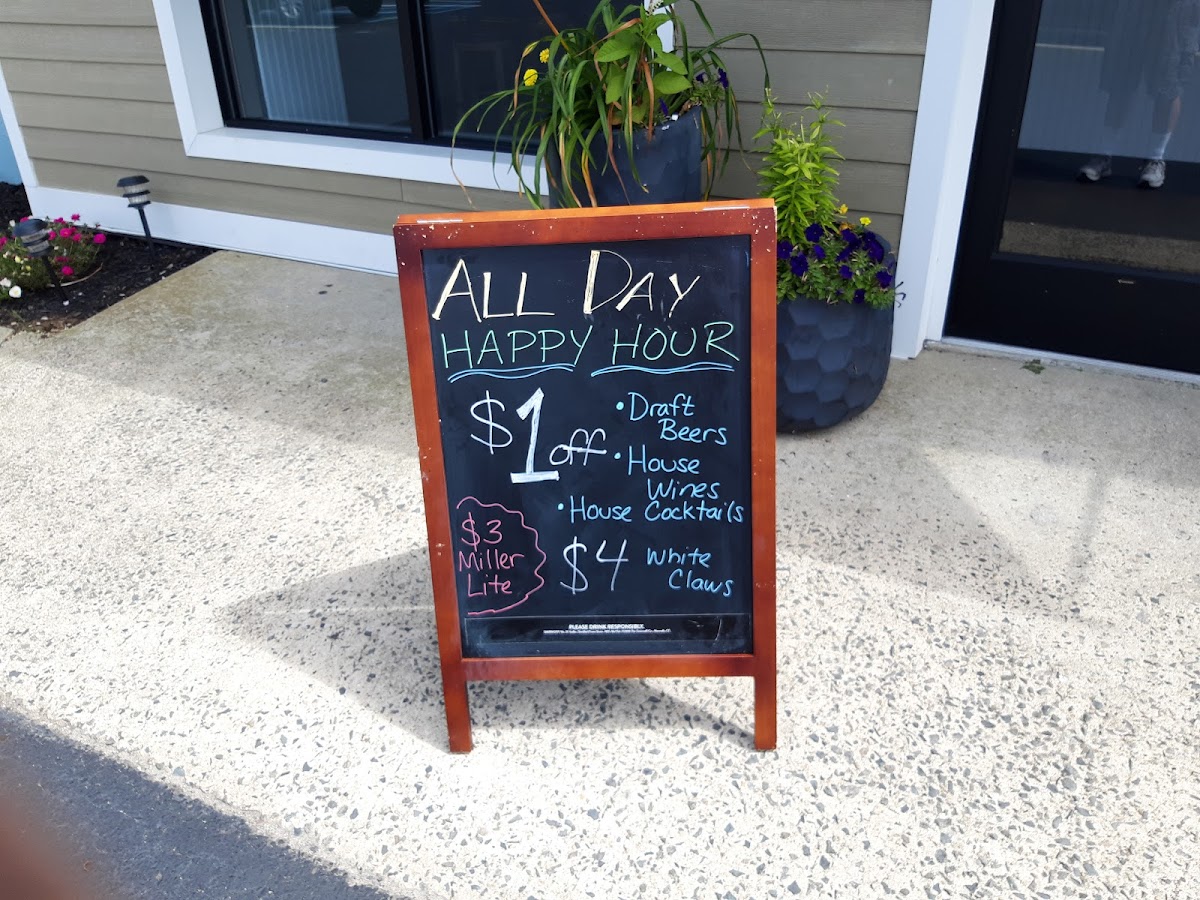 ALL DAY
HAPPY HOUR
$1 off
• Draft
Beers
• House
Wines
• House Cocktails
$3
Miller
Lite
$4 White
Claws
PLEASE DRINK RESPONSIBLY.